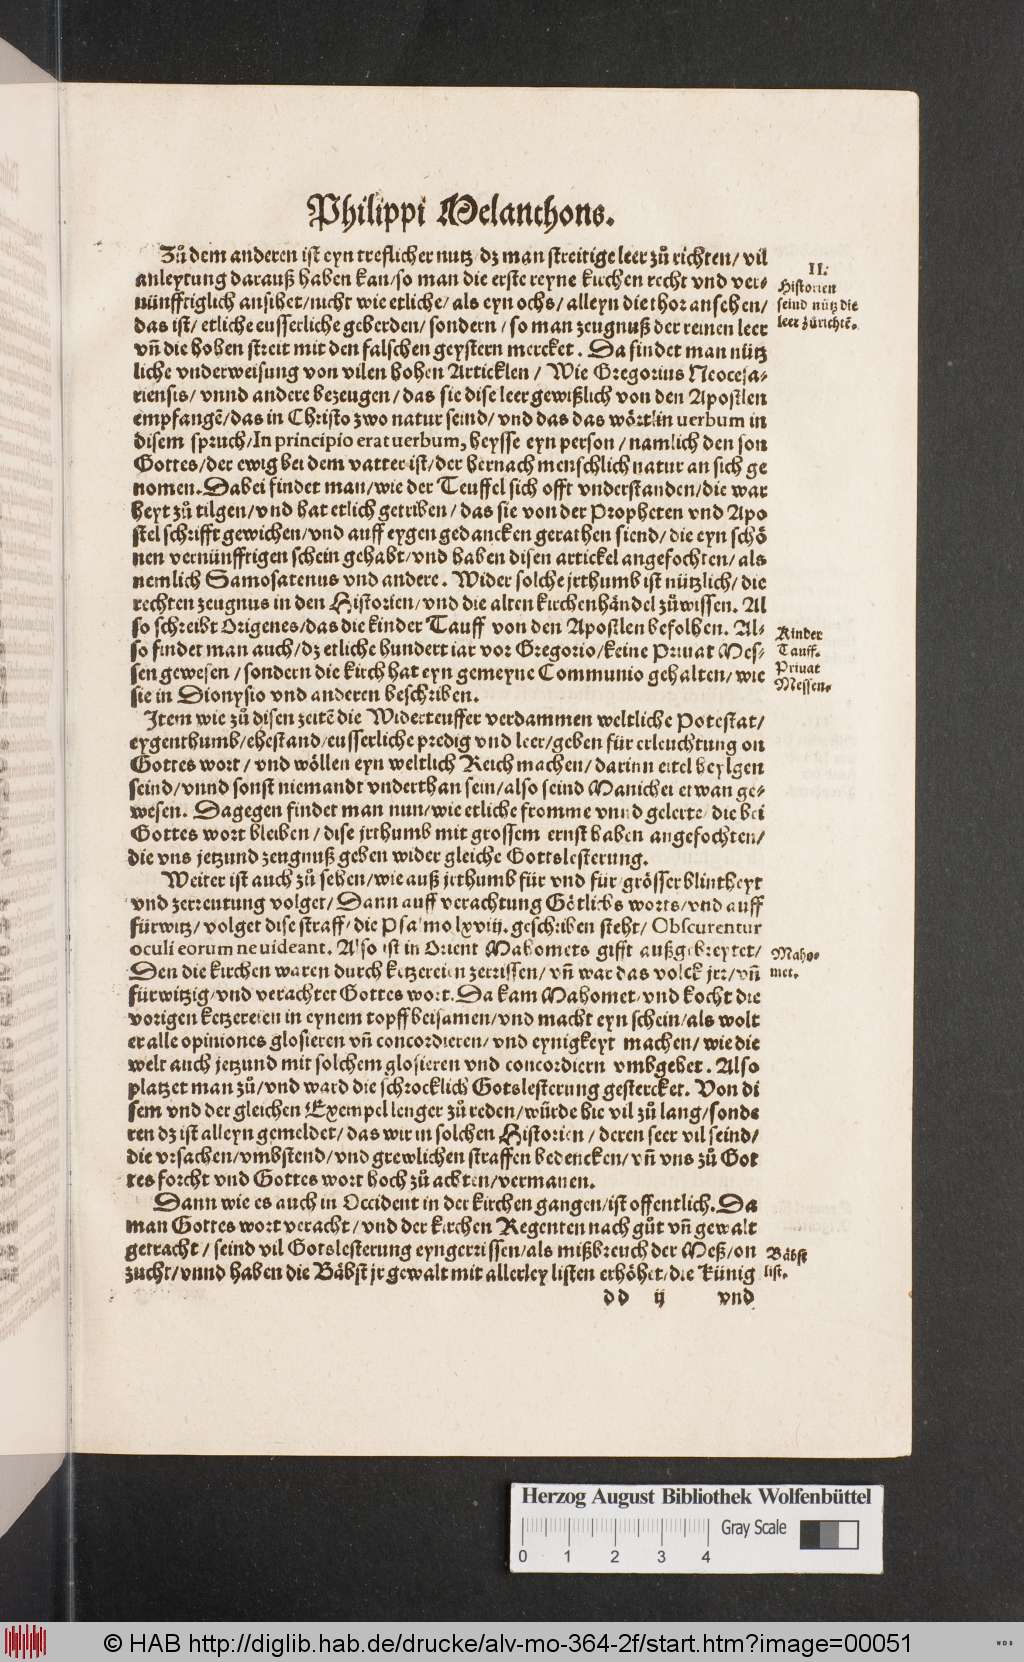 Philippi Melanchons.
Zů dem anderen ist eyn treflicher nutz/ dz man streitige leer zů richten/ vil
anleytung darauß haben kan/ so man die erste reyne kirchen recht vnd ver-
nünfftiglich ansihet/ nicht wie etliche/ als eyn ochs/ alleyn die thor ansehen/
das ist/ etliche eusserliche geberden/ sondern/ so man zeugnuß der reinen leer
vñ die hohen streit mit den falschen geystern mercket. Da findet man nütz
liche vnderweisung von vilen hohen Articklen/ Wie Gregorius Neocesa-
riensis/ vnnd andere bezeugen/ das sie dise leer gewißlich von den Apostlen
empfangẽ/ das in Christo zwo natur seind/ vnd das das wörtlin uerbum in
disem spruch/ In principio erat uerbum, heysse eyn person/ namlich den son
Gottes/ der ewig bei dem vatter ist/ der hernach menschlich natur an sich ge
nomen. Dabei findet man/ wie der Teuffel sich offt vnderstanden/ die war
heyt zů tilgen/ vnd hat etlich getriben/ das sie von der Propheten vnd Apo
stel schrifft gewichen/ vnd auff eygen gedancken gerathen siend/ die eyn schö
nen vernünfftigen schein gehabt/ vnd haben disen artickel angefochten/ als
nemlich Samosatenus vnd andere. Wider solche jrthumb ist nützlich/ die
rechten zeugnus in den Historien/ vnd die alten kirchenhändel zů wissen. Al
so schreibt Origenes/ das die kinder Tauff von den Apostlen befolhen. Al-
so findet man auch/ dz etliche hundert iar vor Gregorio/ keine Priuat Mes-
sen gewesen/ sondern die kirch hat eyn gemeyne Communio gehalten/ wie
sie in Dionysio vnd anderen beschriben.
Item wie zů disen zeitẽ die Widerteuffer verdammen weltliche Potestat/
eygenthumb/ ehestand/ eusserliche predig vnd leer/ geben für erleuchtung on
Gottes wort/ vnd wöllen eyn weltlich Reich machen/ darinn eitel heylgen
seind/ vnnd sonst niemandt vnderthan sein/ also seind Manichei etwan ge-
wesen. Dagegen findet man nun/ wie etliche fromme vnnd gelerte/ die bei
Gottes wort bleiben/ dise jrthumb mit grossem ernst haben angefochten/
die vns jetzund zeugnuß geben wider gleiche Gottslesterung.
Weiter ist auch zů sehen/ wie auß jrthumb für vnd für grösser blintheyt
vnd zerreutung volget/ Dann auff verachtung Götlichs worts/ vnd auff
fürwitz/ volget dise straff/ die Psalmo lxviij. geschriben steht/ Obscurentur
oculi eorum ne uideant. Also ist in Orient Mahomets gifft außgebreytet/
Den die kirchen waren durch ketzereien zerrissen/ vñ war das volck jrr/ vñ
fürwitzig/ vnd verachtet Gottes wort. Da kam Mahomet/ vnd kocht die
vorigen ketzereien in eynem topff beisamen/ vnd macht eyn schein/ als wolt
er alle opiniones glosieren vñ concordieren/ vnd eynigkeyt machen/ wie die
welt auch jetzund mit solchem glosieren vnd concordiern vmbgehet. Also
platzet man zů/ vnd ward die schrocklich Gotslesterung gestercket. Von di
sem vnd der gleichen Exempel lenger zů reden/ würde hie vil zů lang/ sonde
ren dz ist alleyn gemeldet/ das wir in solchen Historien/ deren seer vil seind/
die vrsachen/ vmbstend/ vnd grewlichen straffen bedencken/ vñ vns zů Got
tes forcht vnd Gottes wort hoch zů achten/ vermanen.
Dann wie es auch in Occident in der kirchen gangen/ ist offentlich. Da
man Gottes wort veracht/ vnd der kirchen Regenten nach gůt vñ gewalt
getracht/ seind vil Gotslesterung eyngerrissen/ als mißbreuch der Meß/ on
zucht/ vnnd haben die Bäbst jr gewalt mit allerley listen erhöhet/ die Künig
dd ij vnd
II.
Historien
seind nütz die
leer zůrichtẽ.
Kinder
Tauff.
Priuat
Messen.
Maho-
met.
Bäbst
list.
Herzog August Bibliothek Wolfenbüttel
Gray Scale
0 1 2 3 4
© HAB http://diglib.hab.de/drucke/alv-mo-364-2f/start.htm?image=00051